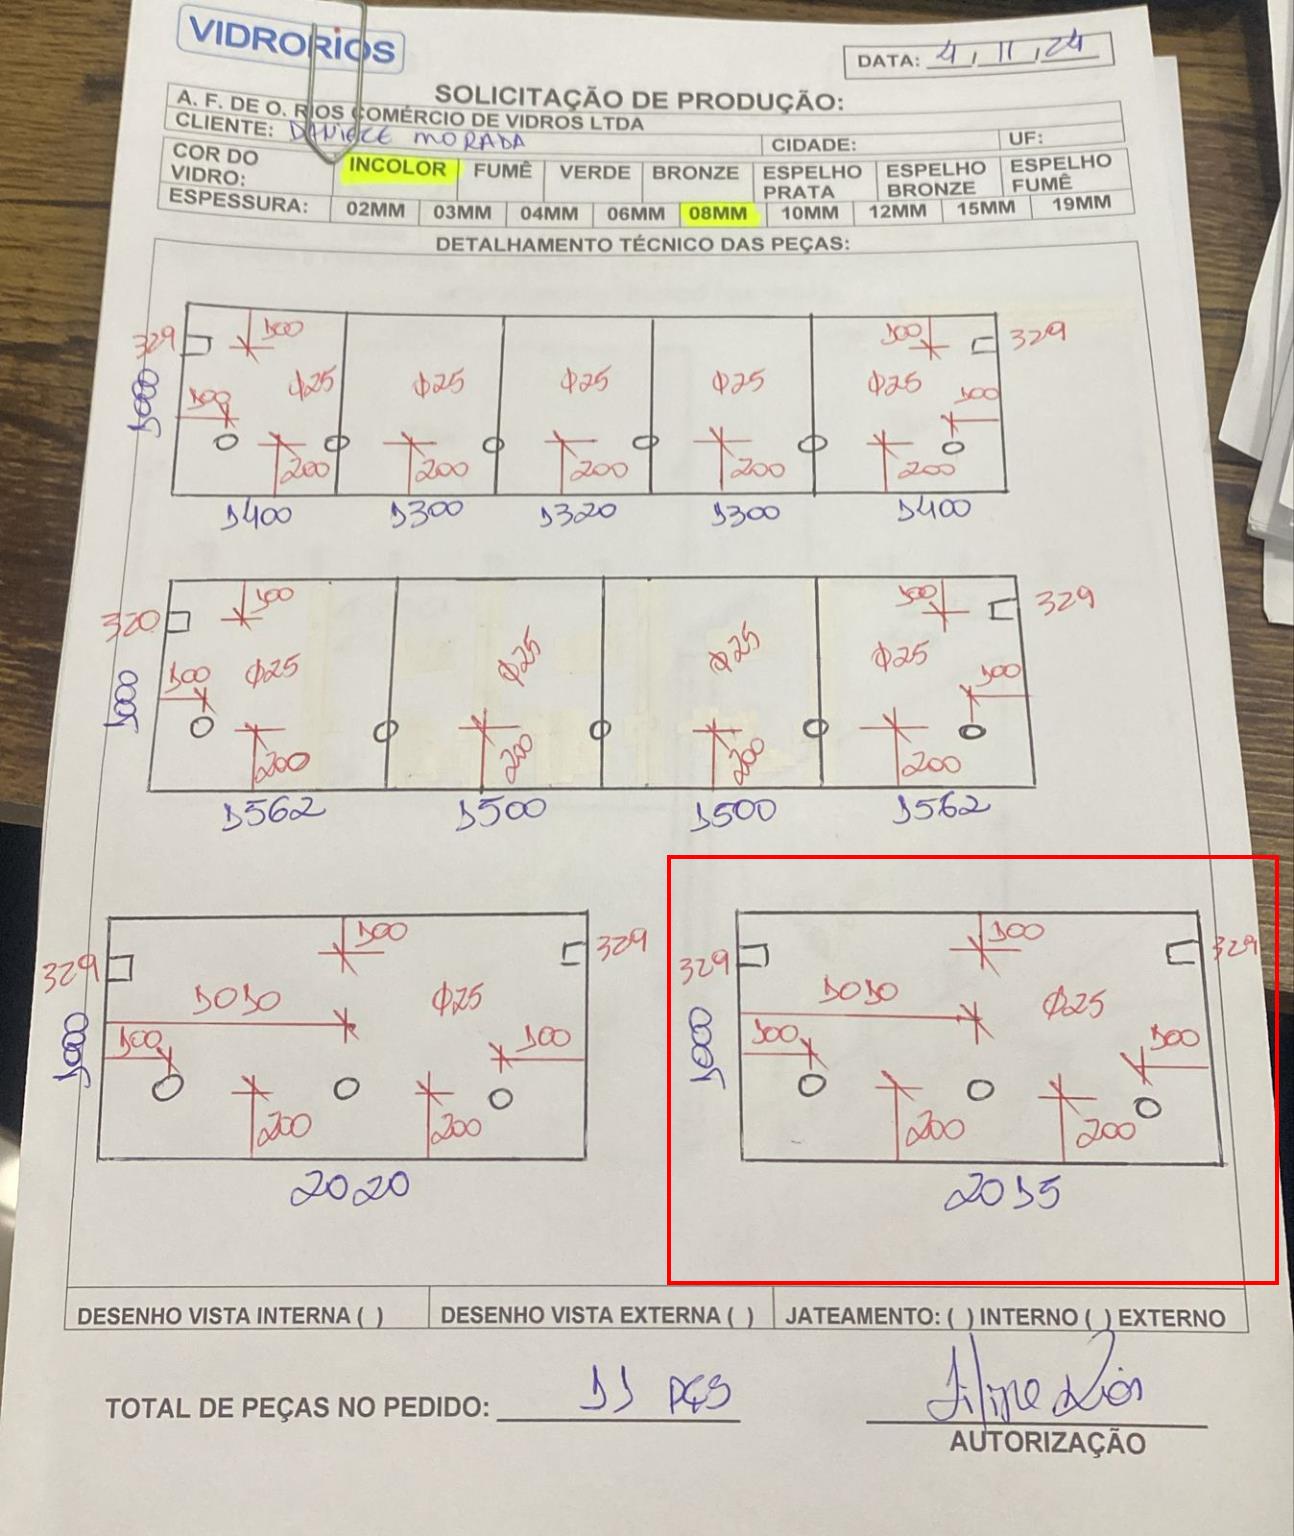 VIDRORIOS
DATA: 4, 11, 24
SOLICITAÇÃO DE PRODUÇÃO:
A. F. DE O. RIOS COMÉRCIO DE VIDROS LTDA
CLIENTE: MORADA CIDADE: UF:
COR DO VIDRO: INCOLOR FUMÊ VERDE BRONZE ESPELHO PRATA ESPELHO BRONZE ESPELHO FUMÊ
ESPESSURA: 02MM 03MM 04MM 06MM 08MM 10MM 12MM 15MM 19MM
DETALHAMENTO TÉCNICO DAS PEÇAS:
329 100 100 329
1000 100 Φ25 Φ25 Φ25 Φ25 Φ25 100
200 200 200 200 200
1400 1300 1320 1300 1400
320 100 100 329
1000 100 Φ25 Φ25 Φ25 Φ25 100
200 200 200 200
1562 1500 1500 1562
329 100 329 329 100 329
1010 Φ25 1010 Φ25
1000 100 100 1000 100 100
200 200 200 200
2020 2015
DESENHO VISTA INTERNA ( ) DESENHO VISTA EXTERNA ( ) JATEAMENTO: ( ) INTERNO ( ) EXTERNO
TOTAL DE PEÇAS NO PEDIDO: 11 PÇS
Filipe Rios
AUTORIZAÇÃO